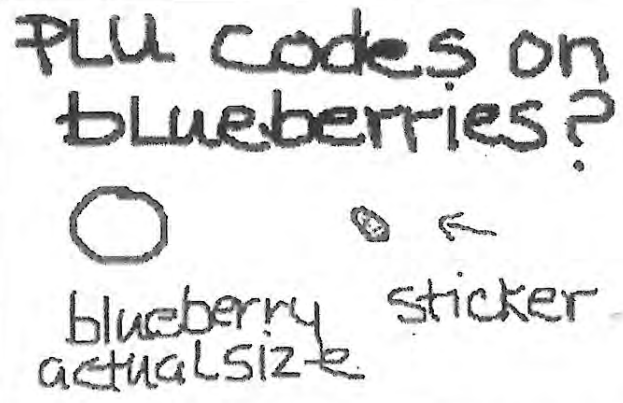 PLU codes on
blueberries?
blueberry
actual size
sticker